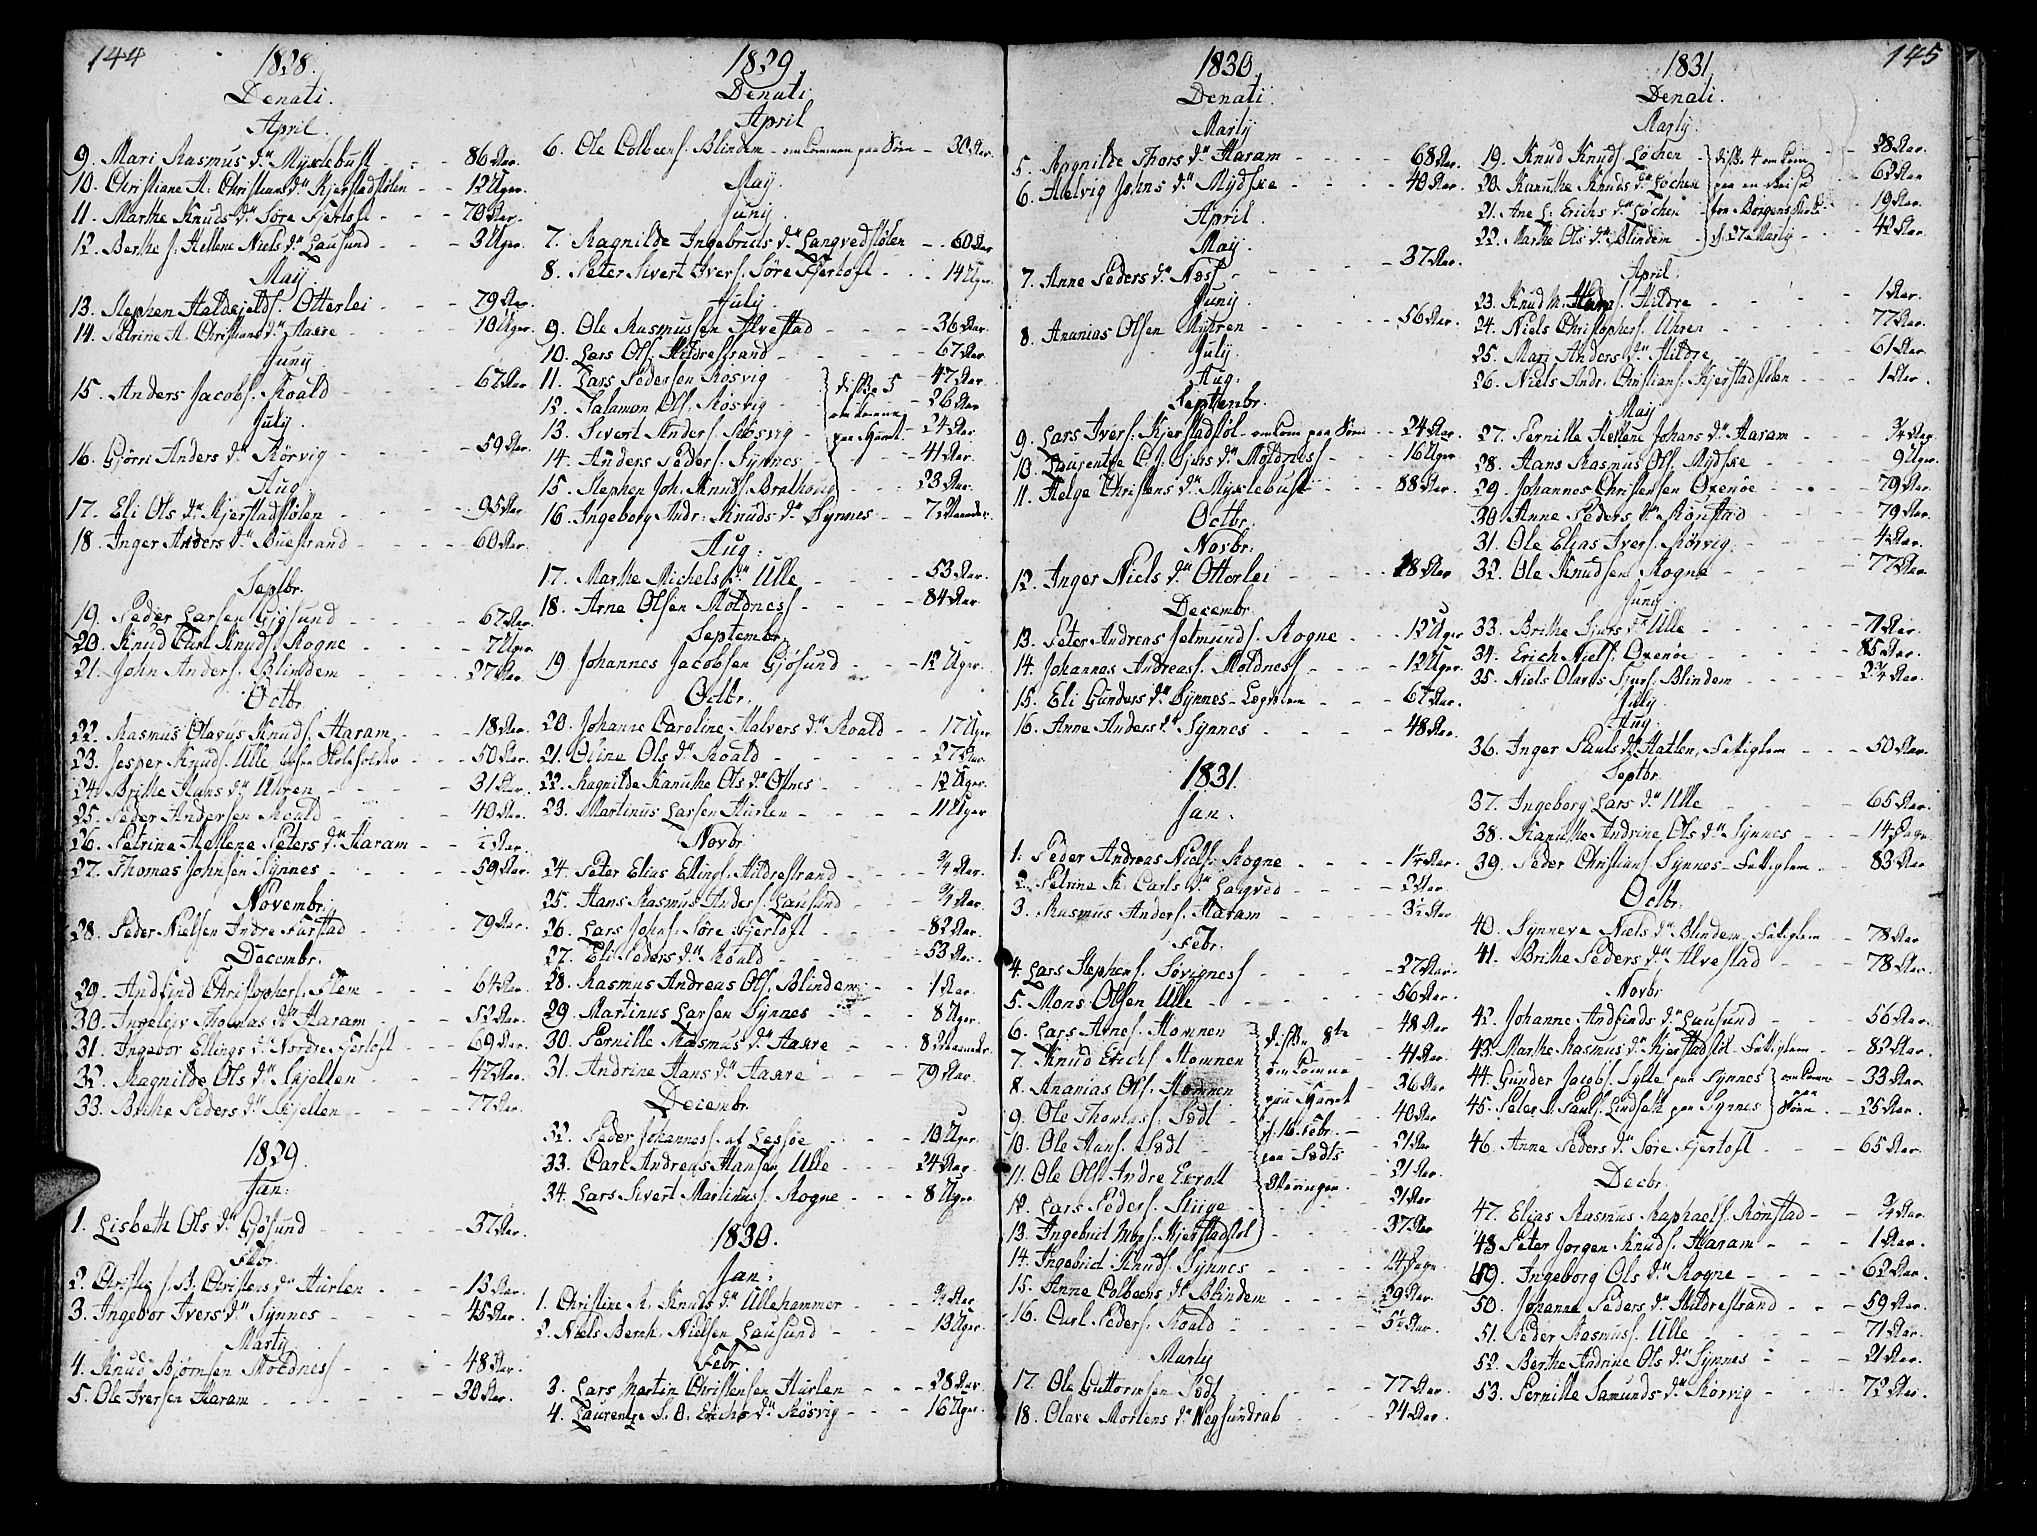 144
1828.
Denati.
April.
9. Mari Rasmus d.r Myklebust - - - 86 Aar.
10. Christiane A. Christians d.r Kjerstadstølen - - 12 Uger.
11. Marthe Knuds d.r Søre Fjertoft - - - 70 Aar.
12. Berthe s. Hellene Niels d.r Lausund - - - 3 Uger.
May.
13. Stephen Haldejelds. Otterlei - - - 79 Aar.
14. Petrine A. Christians d.r Aakre - - - 10 Uger.
Juny
15. Anders Jacobs. Roald - - - 67 Aar
July.
16. Gjørri Anders d.r Rørvig - - - 59 Aar.
Aug
17. Eli Ols d.r Kjerstadstølen - - - 95 Aar
18. Inger Anders d.r Buestrand - - - 60 Aar.
Septbr.
19. Peder Larsen Gjøsund - - - 67 Aar.
20. Knud Carl Knuds. Rogne - - - 7 Uger.
21. John Anders. Blindem - - - 27 Aar
Octbr.
22. Rasmus Olavus Knuds. Haram - - - 18 Aar.
23. Jesper Knuds. Ulle - - - 50 Aar.
24. Brithe Hans d.r Uhren - - - 31 Aar.
25. Peder Andersen Roald - - - 40 Aar.
26. Petrine Hellene Peters d.r Haram - - ½ Aar.
27. Thomas Johnsen Synnes - - - 59 Aar.
Novembr.
28. Peder Nielsen Indre Farstad - - - 79 Aar.
Decembr.
29. Andfind Christophers. Flem - - - 64 Aar.
30. Ingelev Thomas d.r Haram - - - 52 Aar.
31. Ingebor Ellings d.r Nordre Fjertoft - - - 69 Aar.
32. Ragnilde Ols d.r Skjellen - - - 47 Aar.
33. Brithe Peders d.r Skjellen - - - 77 Aar.
1829.
Jan:
1. Lisbeth Ols d.r Gjøsund - - - 37 Aar.
Febr.
2. B. Christens d.r Hurlen - - - 13 Aar.
3. Ingebor Ivers d.r Synnes - - - 45 Aar.
Marty
4. Knud Bjørnsen Moldness - - - 48 Aar.
5. Ole Iversen Haram - - - 30 Aar.
1829.
Denati
April
6. Ole Colbeens. Blindem - omkommen paa Søen - 30 Aar.
May.
Juny.
7. Ragnilde Ingebrids d.r Langvedstølen - - 60 Aar
8. Peter Sivert Ivers. Søre Fjertoft - - - 14 Uger.
July.
9. Ole Rasmussen Alvestad - - - 36 Aar.
10. Lars Ols. Hildrestrand - - - 67 Aar.
11. Lars Pedersen Røsvig - 47 Aar.
12. Salamon Ols. Røsvig - 26 Aar
13. Sivert Anders. Røsvig - 24 Aar.
14. Anders Peders. Synnes - 41 Aar.
15. Stephen Joh. Knuds. Brathoug - 23 Aar.
disse 5
omkomne
paa Havet.
16. Ingeborg Andr: Knuds d.r Synnes - - 7 Maaneder.
Aug:
17. Marthe Michels d.r Ulle - - - 53 Aar.
18. Arne Olsen Moldness - - - 84 Aar.
Septembr.
19 Johannes Jacobsen Gjøsund - - - 12 Uger.
Octbr.
20. Johanne Caroline Halvers d.r Roald - - 17 Uger
21. Oline Ols d.r Roald - - - 27 Aar.
22. Ragnilde Kanuthe Ols d.r Ofnes - - - 12 Uger.
23. Martinus Larsen Hurlen - - - 11 Uger
Novbr
24. Peter Elias Ellings. Hildrestrand - - - ¾ Aar.
25. Hans Rasmus Anders. Lausund - - - ¾ Aar.
26. Lars Johns. Søre Fjertoft - - - 82 Aar.
27. Eli Peders d.r Roald - - - 53 Aar.
28. Rasmus Andreas Ols. Blindem - - 1 Aar.
29. Martinus Larsen Synnes - - - 8 Uger.
30. Pernille Rasmus d.r Aakre - - - 8 Maaneder
31. Andrine Hans d.r Aakre - - - 79 Aar.
Decembr.
32. Peder Johanness. af Lessøe - - - 10 Uger.
33. Carl Andreas Hansen Ulle - - - 24 Aar
34. Lars Sivert Martinus s. Rogne - - - 8 Uger.
1830.
Jan:
1. Christine M. Knuds d.r Ullehammer - - - ¾ Aar
2. Niels Bernh. Nielsen Lausund - - - 13 Uger.
Febr.
3. Lars Martin Christensen Hurlen - - - 28 Aar
4. Laurentze S. O. Erichs d.r Røsvig - - - 16 Uger.
1830
Denati.
Marty
5. Ragnilde Thors d.r Haram - - - 68 Aar.
6. Helvig Johns d.r Mydske - - - 40 Aar.
April.
May.
7. Anne Peders d.r Næss - - - 37 Aar.
Juny.
8. Ananias Olsen Mytren - - - 56 Aar.
July.
Aug.
Septembr.
9. Lars Ivers. Kjerstadstøl - omkom paa Søen - - 24 Aar.
10. Laurentze Sjurs d.r Moldness - - - 16 Uger
11. Helge Christens d.r Myklebust - - - 88 Aar.
Octbr.
Novbr.
12. Inger Niels d.r Otterlei - - - 28 Aar
Decembr.
13. Peter Andreas Jetmunds. Rogne - - - 12 Uger
14. Johannes Andreas s. Moldness - - - 12 Uger
15. Eli Gunders d.r Synnes - Lægdslem - - - 67 Aar.
16. Anne Anders d.r Synnes - - - 48 Aar.
1831.
Jan.
1. Peder Andreas Niels. Rogne - - - 1½ Aar.
2. Petrine K. Carls d.r Langved - - - 2 Aar.
3. Rasmus Anders. Haram - - - 3½ Aar
Febr.
4. Lars Stephens. Søvigness - - - 27 Aar.
5. Mons Olsen Ulle - - - 56 Aar.
6. Lars Arnes. Momnen - 48 Aar
7. Knud Erichs. Momnen - 41 Aar.
8. Ananias Ols. Momnen - 36 Aar
9. Ole Thomass. Sødt - 40 Aar
10. Ole Hans. Sødt - 21 Aar
11. Ole Ols. Indre Exroll - 21 Aar.
12. Lars Peders. Stuge - 21 Aar
13. Ingebrict Mogs. Kjerstadstøl - 37 Aar
disse 8te
omkomne
paa Havet
d. 16. Febr. -
paa Sødts
14. Ingebrict Knuds. Synnes - - - 14 Dage.
15. Anne Colbeens d.r Blindem - - - 29 Aar.
16. Carl Peders. Roald - - - 5½ Aar.
Marty
17. Ole Guttormsen Sødt - - - 77 Aar.
18. Olave Mortens d.r Hegsundrab - - - 24 Aar.
145
1831
Denati.
Marty.
19. Knud Knuds. Løchen - 28 Aar.
20. Kanuthe Knuds d.r Løchen - 62 Aar
21. Ane L. Erichs d.r Løchen - 19 Aar.
22. Marthe Ols d.r Blindem - 42 Aar.
disse 4 omkom
paa en Reise
fra Borgens Kirke
d. 27 Marty
April.
23. Knud H. Hildre - - - 1 Aar.
24. Niels Christophers. Uhren - - - 77 Aar.
25. Mari Anders d.r Hildre - - - 61 Aar.
26. Niels Andr. Christians. Kjerstadstølen - - - 1 Aar.
May
27. Pernille Hellene Johans d.r Haram - - - ¾ Aar
28. Hans Rasmus Ols. Mydske - - - 9 Uger.
29. Johannes Christensen Oxenøe - - - 79 Aar.
30 Anne Peders d.r Rønstad - - - 79 Aar.
31. Ole Elias Ivers. Rørvig - - - 4 Aar.
32. Ole Knudsen Rogne - - - 77 Aar.
Juny
33. Brithe Sjurs d.r Ulle - - - 71 Aar.
34. Erich Niels. Oxenøe - - - 85 Aar.
35. Niels Olavus Sjurs. Blindem - - - 2¾ Aar.
July
Aug.
36. Inger Pauls d.r Hatlen, Fattiglem - - - 50 Aar.
Septbr.
37. Ingeborg Lars d.r Ulle - - - 65 Aar.
38. Kanuthe Andrine Ols d.r Synnes - - - 14 Dage.
39. Peder Christians. Synnes - Fattiglem - - 83 Aar
Octbr.
40. Synneve Niels d.r Blindem, Fattiglem - - 78 Aar
41. Brithe Peders d.r Alvestad - - - 78 Aar.
Novbr
42. Johanne Andfinds d.r Lausund - - - 56 Aar.
43. Marthe Rasmus d.r Kjerstadstøl - Fattiglem - - 82 Aar.
44. Gunder Jacobs. Sylte paa Synnes - 33 Aar.
45. Peter S. Pauls. Lindseth paa Synnes - 25 Aar.
omkomne
paa
Søen
46. Anne Peders d.r Søre Fjertoft - - - 65 Aar.
Decbr.
47. Elias Rasmus Raphaels. Rønstad - - ¾ Aar.
48 Peter Jorgen Knuds. Haram - - - 1 Aar.
49. Ingeborg Ols d.r Rogne - - - 62 Aar.
50. Johanne Peders d.r Hildrestrand - - - 59 Aar.
51. Peder Rasmus s. Ulle - - - 71 Aar.
52. Berthe Andrine Ols d.r Synnes - - - 21 Aar.
53. Pernille Samunds d.r Rørvig - - - 72 Aar.